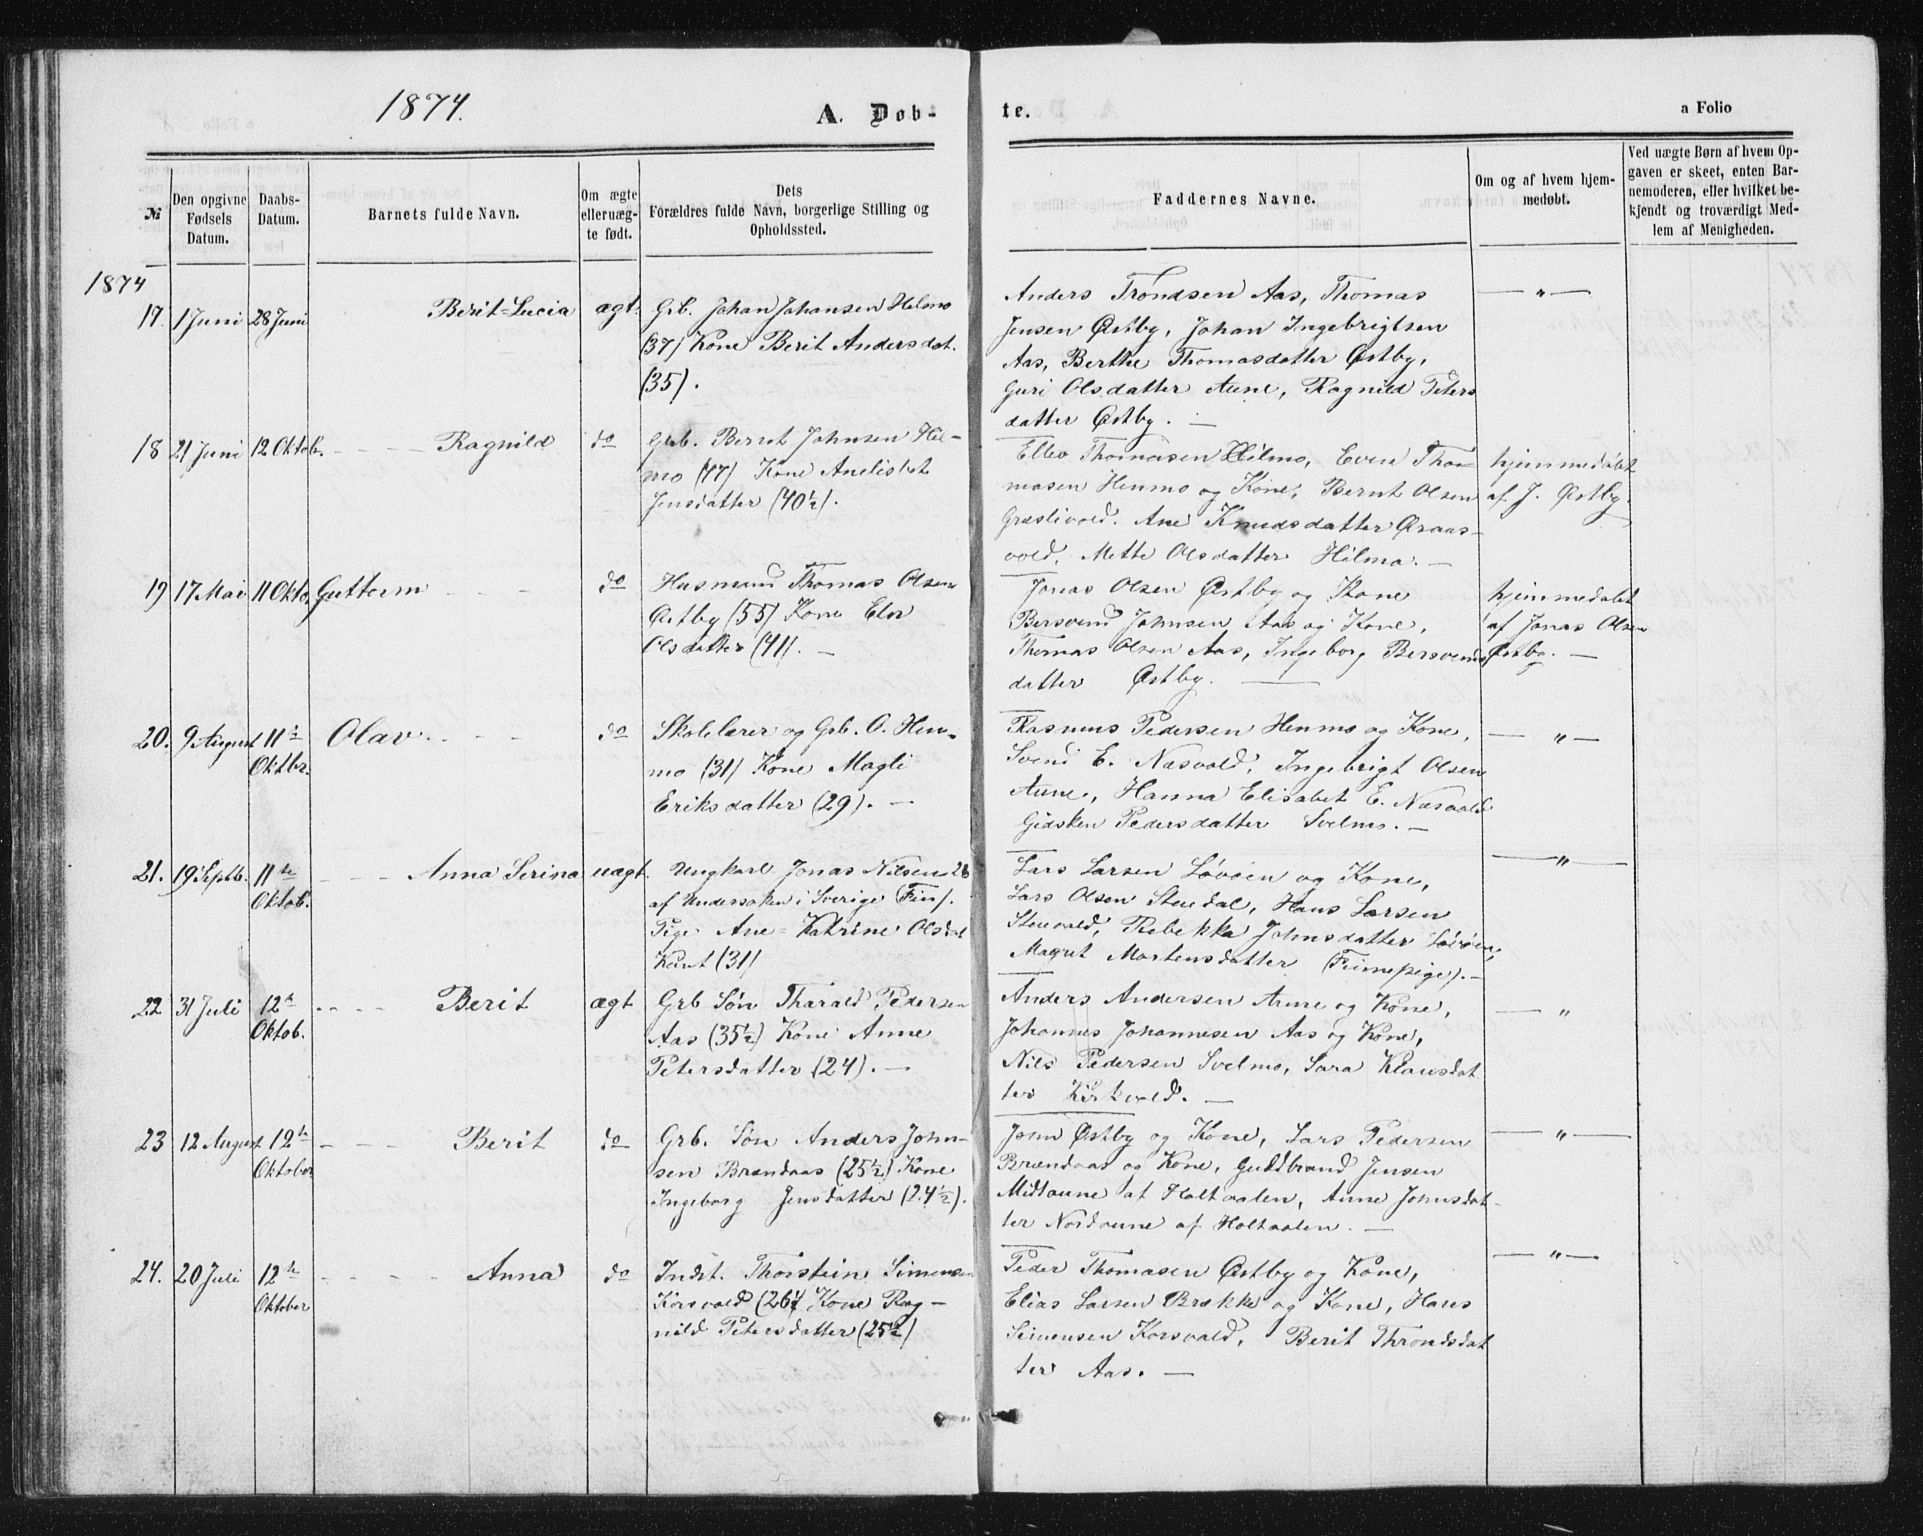 1874.
A. Døb-
te.
a Folio
№
Den opgivne Fødsels Datum.
Daabs-Datum.
Barnets fulde Navn.
Om ægte eller uæg-te født.
Dets
Forældres fulde Navn, borgerlige Stilling og
Opholdssted.
Faddernes Navne.
Om og af hvem hjem-
medøbt.
Ved uægte Børn af hvem Op-
gaven er skeet, enten Bar-
nemoderen, eller hvilket be-
kjendt og troværdigt Med-
lem af Menigheden.
1874
17. 1 Juni 28 Juni Berit=Lucia ægt.
Grb. Johan Johansen Helmo
(37) Kone Berit Andersdat.
(35).
Anders Trondsen Aas, Thomas
Jensen Østby, Johan Ingebrigtsen
Aas, Berthe Thomasdatter Østby,
Guri Olsdatter Aune, Ragnild Peters
datter Østby. —
— " —
18 21 Juni 12 Oktob. Ragnild do
Grb. Bernt Johnsen Hil-
mo (47) Kone Anelisbet
Jensdatter (40½).
Ellev Thomasen Hilmo, Even Tho-
masen Henmo og Kone, Bernt Olsen
Græslivold. Ane Knudsdatter
vold. Mette Olsdatter Hilmo. —
hjemmedøbt
af J. Østby.
19 17 Mai 11 Oktob Guttorm do
Husmand Thomas Olsen
Østby (55) Kone Elen
Olsdatter (41). —
Jonas Olsen Østby og Kone
Bersvend Johnsen Aas og Kone,
Thomas Olsen Aas, Ingeborg Bersvends
datter Østby. —
hjemmedøbt
af Jonas Olsen
Østby. —
20. 9 August 11te Oktbr. Olav. do
Skolelærer og Grb. O. Hen-
mo (31) Kone Magli
Eriksdatter (29). —
Rasmus Pedersen Henmo og Kone,
Svend E. Næsvold, Ingebrigt Olsen
Aune, Hanna Elisabet E. Næsvold
Gidsken Pedersdatter Svelmo. —
— " —
21. 19 Septb. 11te Oktob. Anna Serina uægt.
Ungkarl Jonas Nilsen 28
af Undersaker i Sverige (Fin).
Pige Ane=Katrine Olsdat
Kant (31)
Lars Larsen Løvøen og Kone,
Lars Olsen Stuedal, Hans Larsen
Stuevold, Rebekka Johnsdatter Løvøen,
Magret Mortensdatter (Finnepige). —
— " —
22 31 Juli 12te Oktob. Berit ægt
Grb Søn Tharald Pedersen
Aas (35½) Kone Anne
Petersdatter (24). —
Anders Andersen Aune og Kone,
Johannes Johannesen Aas og Kone,
Nils Pedersen Svelmo, Sara Klausdat
ter Kirkvold. —
— "
23 12 August 12te Oktober Berit do
Grb. Søn Anders John-
sen Brændaas (25½) Kone
Ingeborg Jensdatter (24½).
John Østby og Kone, Lars Pedersen
Brændaas og Kone, Guldbrand Jensen
Midtaune af Holtaalen, Anne Johnsdat-
ter Nordaune af Holtaalen. —
— " —
24. 20 Juli 12te Oktober Anna do
Indst. Thorstein Simensen
Korsvold (26) Kone Rag-
nild Petersdatter (25½)
Peder Thomasen Østby og Kone,
Elias Larsen Brække og Kone, Hans
Simensen Korsvold, Berit Throndsdat
ter Aas. —
— " —